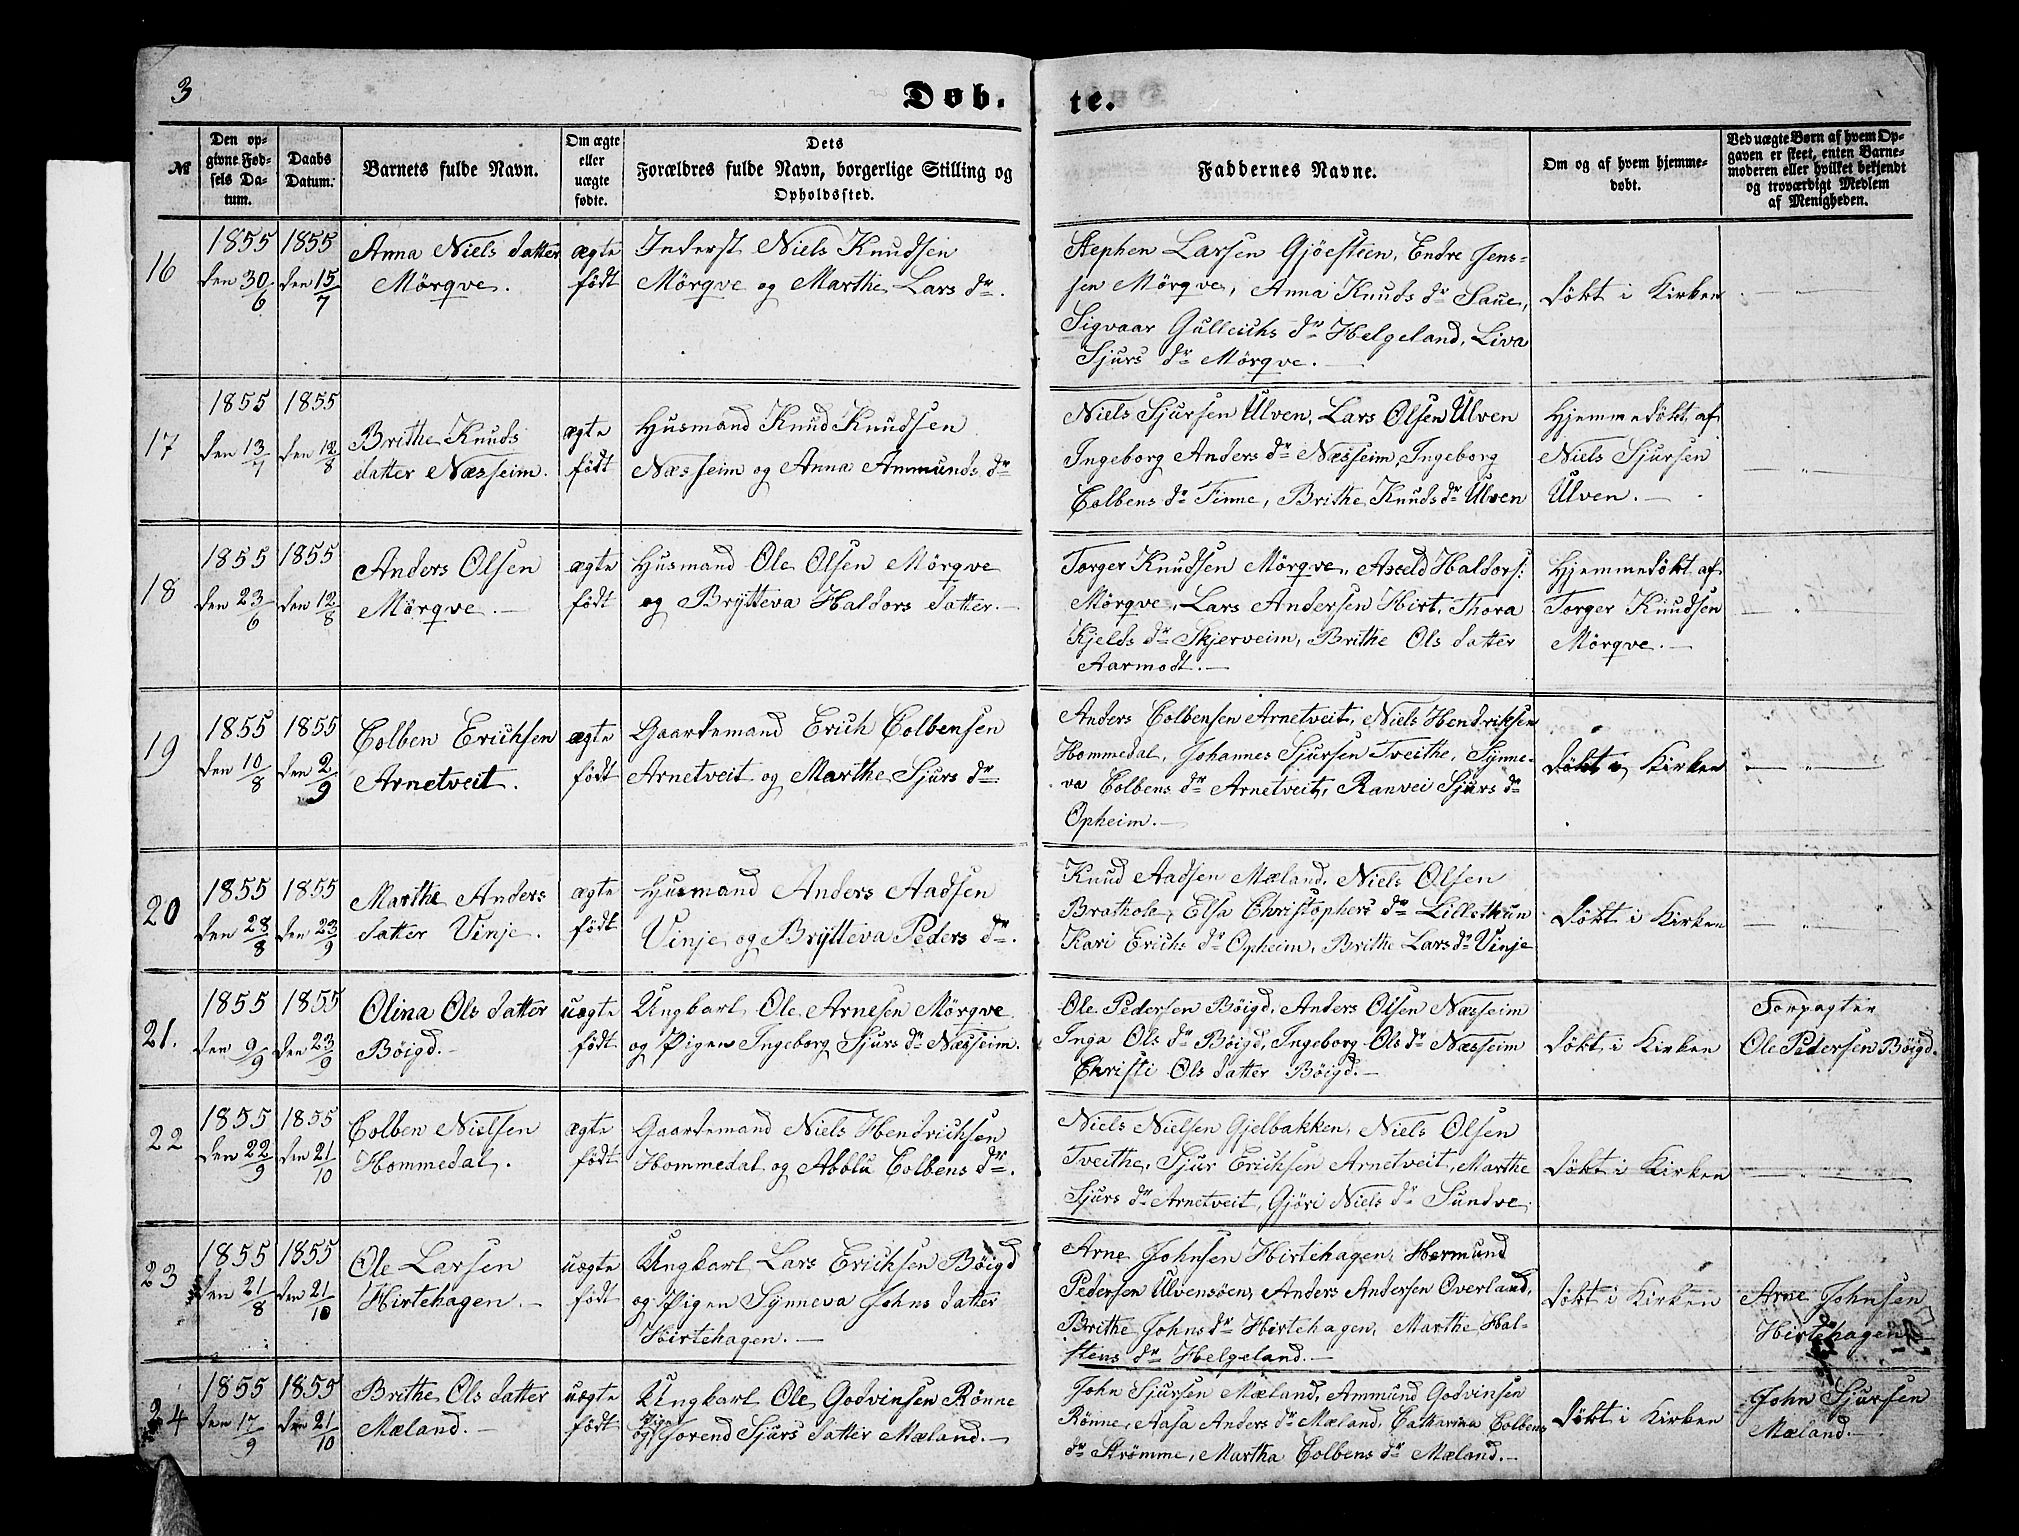 3
Døb.
te.
№
Den op-
givne Fød-
sels Da-
tum.
Daabs
Datum.
Barnets fulde Navn.
Om ægte
eller
uægte
fødte.
Dets
Forældres fulde Navn, borgerlige Stilling og
Opholdssted.
Faddernes Navne.
Om og af hvem hjemme-
døbt.
Ved uægte Børn af hvem Op-
gaven er skeet, enten Barne-
moderen eller hvilket bekjendt
og troværdigt Medlem
af Menigheden.
16
1855
den 30/6
1855
den 15/7
Anna Niels datter
Mörqve.
ægte
födt
Inderst Niels Knudsen
Mörqve og Marthe Lars dr.
Stephen Larsen Gjöestien, Endre Jens-
sen Mörqve, Anna Knuds dr Saue,
Sigvaar Gulleichs dr Helgeland, Liva
Sjurs dr Mörqve.
döbt i Kirken
17
1855
den 13/7
1855
den 12/8
Brithe Knuds
datter Næsseim.
ægte
födt
Husmand Knud Knudsen
Næsseim og Anna Ammunds dr
Niels Sjursen Ulven, Lars Olsen Ulven
Ingeborg Anders dr Næsseim, Ingeborg
Colbens dr Finne, Brithe Knuds dr Ulven
Hjemmedöbt af
Niels Sjursen
Ulven.
18
1855
den 23/6
1855
den 12/8
Anders Olsen
Mörqve.
ægte
födt
Husmand Ole Olsen Mörqve
og Brÿtteva Haldors datter.
Torger Knudsen Mörqve, Axeld Haldors:
Mörqve, Lars Andersen Hirt, Thora
Kjelds dr Skjerveim, Brithe Ols datter
Aarmodt.
Hjemmedöbt af
Torger Knudsen
Mörqve.
19
1855
den 10/8
1855
den 2/9
Colben Erichsen
Arnetveit.
ægte
födt
Gaardemand Erich Colbensen
Arnetveit og Marthe Sjurs dr
Anders Colbensen Arnetveit, Niels Hendriksen
Hommedal, Johannes Sjursen Tveithe, Sÿnne-
va Colbens dr Arnetveit, Ranvei Sjurs dr
Opheim.
döbt i Kirken
20
1855
den 28/8
1855
den 23/9
Marthe Anders
datter Vinje.
ægte
födt
Husmand Anders Aadsen
Vinje og Brÿtteva Peders dr.
Knud Aadsen Mæland, Niels Olsen
Brathole, Elsa Christophers dr Lillethun
Kari Erichs dr Opheim, Brithe Lars dr Vinje
döbt i Kirken
21.
1855
den 9/9
1855
den 23/9
Olina Ols datter
Böigd.
uægte
födt
Ungkarl Ole Arnesen Mörqve
og Pigen Ingeborg Sjurs dr Næsseim.
Ole Pedersen Böigd, Anders Olsen Næsseim
Inga Ols dr Böigd, Ingeborg Ols dr Næsseim
Christi Ols datter Böigd.
döbt i Kirken
Forpagter
Ole Pedersen Böigd.
22
1855
den 22/9
1855
den 21/10
Colben Nielsen
Hommedal.
ægte
födt
Gaardemand Niels Hendrichsen
Hommedal og Ablu Colbens dr.
Niels Nielsen Gjelbakken, Niels Olsen
Tveithe, Sjur Erichsen Arnetveit, Marthe
Sjurs dr Arnetveit, Gjöri Niels dr Sundve.
döbt i Kirken
23
1855
den 21/8
1855
den 21/10
Ole Larsen
Hirtehagen.
uægte
födt
Ungkarl Lars Erichsen Böigd
og Pigen Sÿnneva Johns datter
Hirtehagen.
Arne Johnsen Hirtehagen, Hermund
Pedersen Ulvensöen, Anders Andersen Overland,
Brithe Johns dr Hirtehagen, Marthe Hal-
stens dr Helgeland.
döbt i Kirken
Arne Johnsen
Hirtehagen
24
1855
den 17/9
1855
den 21/10
Brithe Ols datter
Mæland.
uægte
födt
Ungkarl Ole Godvinsen Rönne
og Pige Gorend Sjurs datter Mæland.
John Sjursen Mæland, Ammund Godvinsen
Rönne, Aasa Anders dr Mæland, Catharina Colbens
dr Strömme, Martha Colbens dr Mæland.
döbt i Kirken
John Sjursen
Mæland.